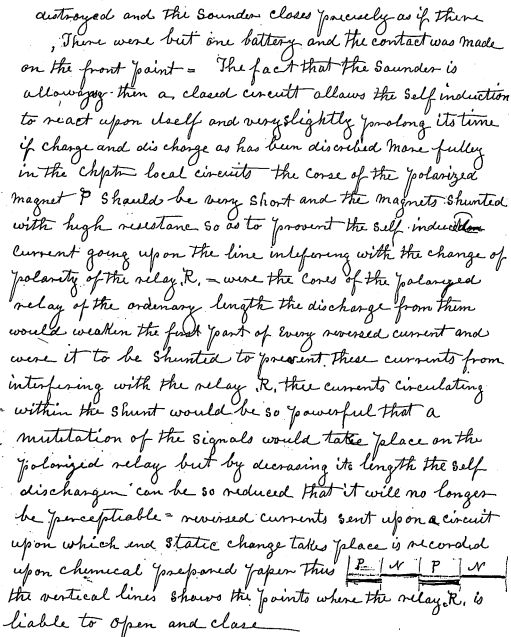 distroyed and the Sounder closes precisely as if there
, There were but one battery and the contact was made
on the front point = The fact that the Sounder is
allways then a closed circuit allows the self induction
to react upon itself and very slightly prolong its time
if charge and discharge as has been discribed more fulley
in the Chptr local circuits the corse of the polarized
magnet P should be very short and the magnets shunted
with high resistance so as to prevent the self induction
current going upon the line intefering with the change of
polarity of the relay R. = were the cores of the polarized
relay of the ordenary length the discharge from them
would weaken the first part of Every reversed current and
were it to be shunted to prevent these currents from
interfering with the relay R. thee currents circulating
within the shunt would be so powerful that a
mutilation of the signals would take place on the
polarized relay but by decrasing its length the self
discharger can be so reduced that it will no longer
be perceptiable = reversed currents sent upon a circuit
upon which end static change takes place is recorded
upon chemical prepared paper thus P N P N
the vertical lines shows the points where the relay R. is
liable to open and close